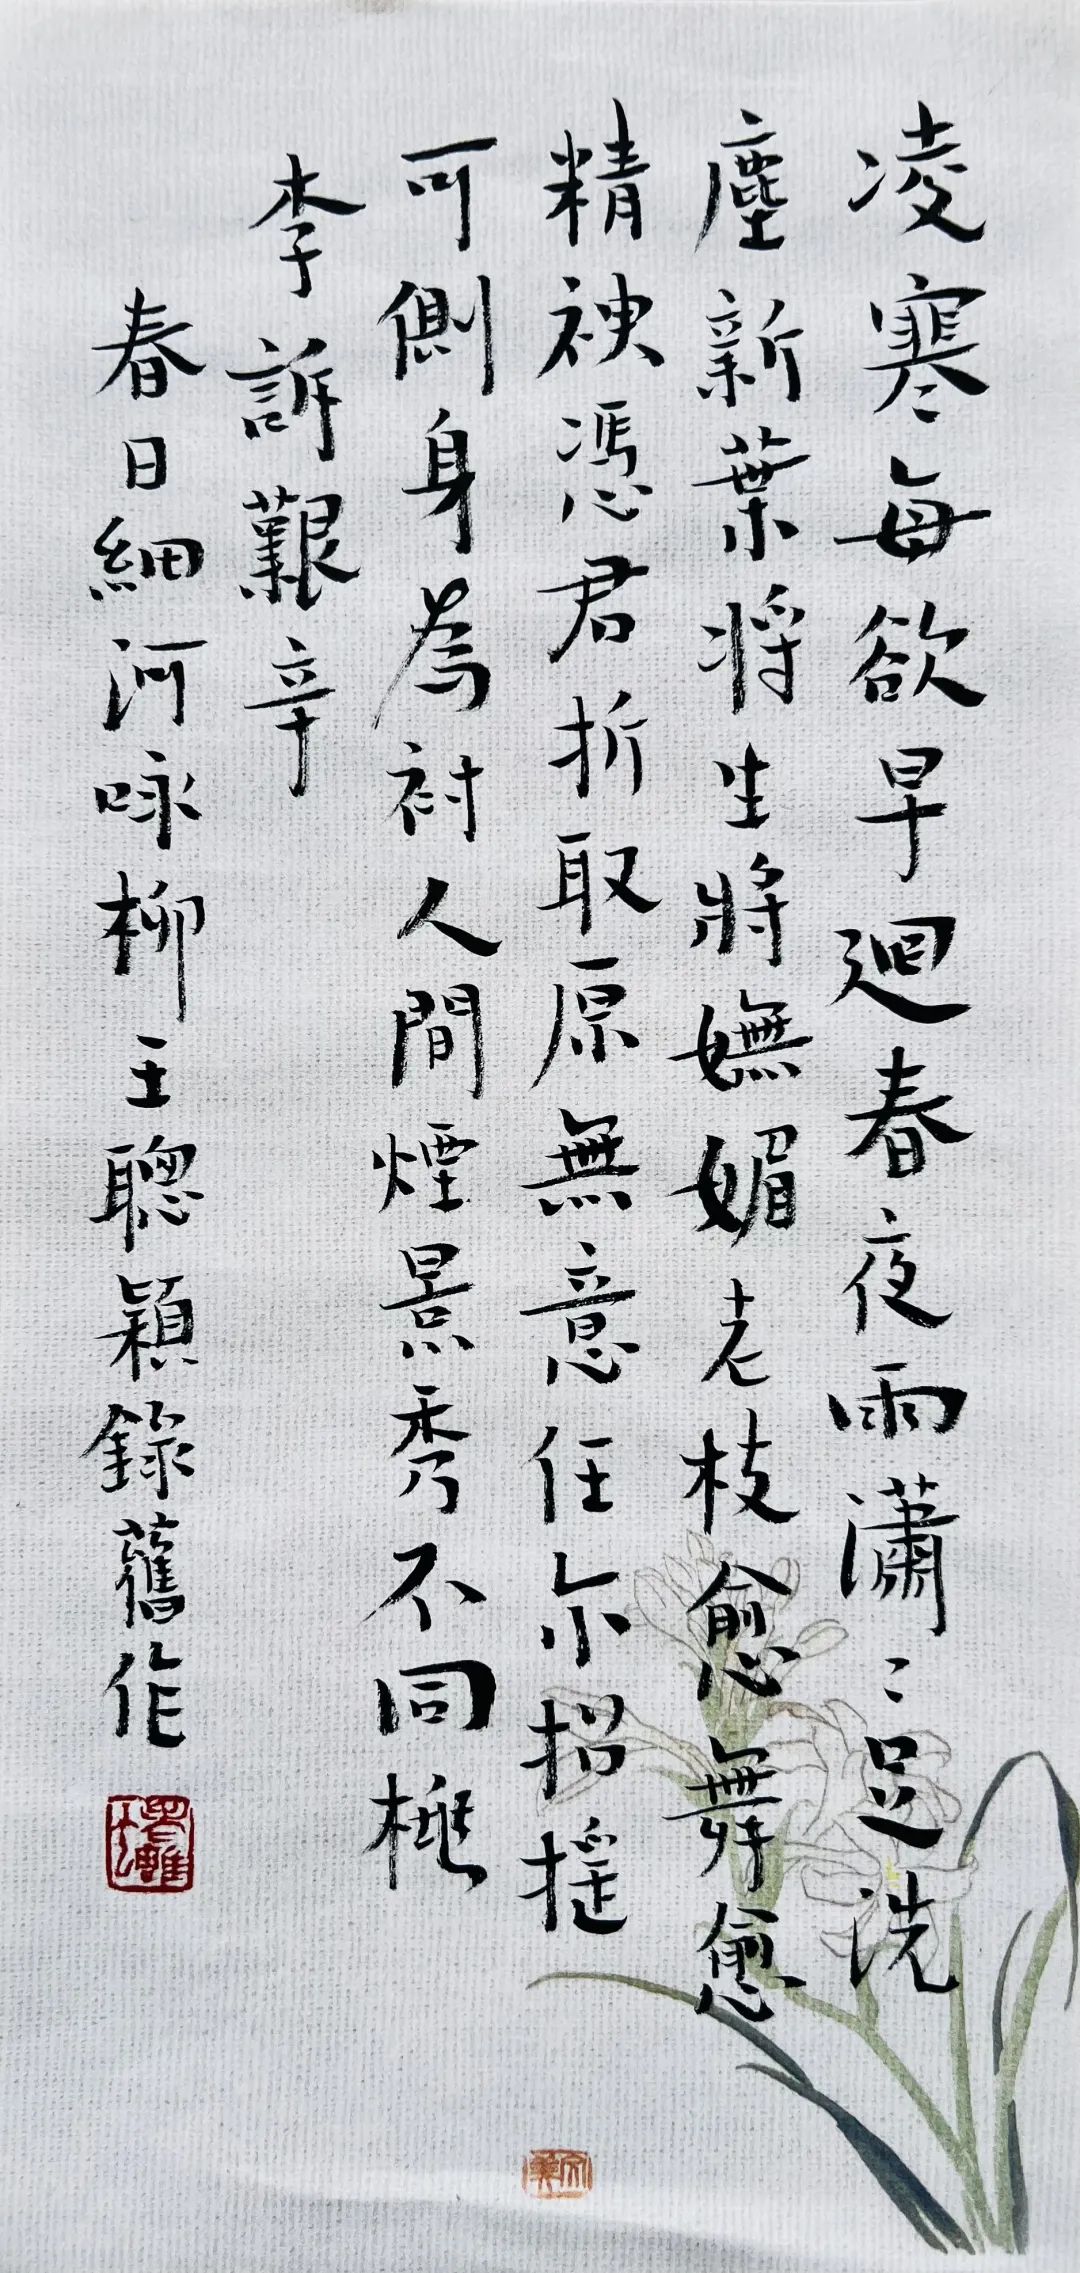 凌寒每欲早迴春夜雨瀟〻足洗
塵新葉将生將嫵媚老枝愈舞愈
精神憑君折取原無意任尔招摇
可側身為衬人間煙景秀不同桃
李訴艱辛
春日細河咏柳王聰穎錄舊作